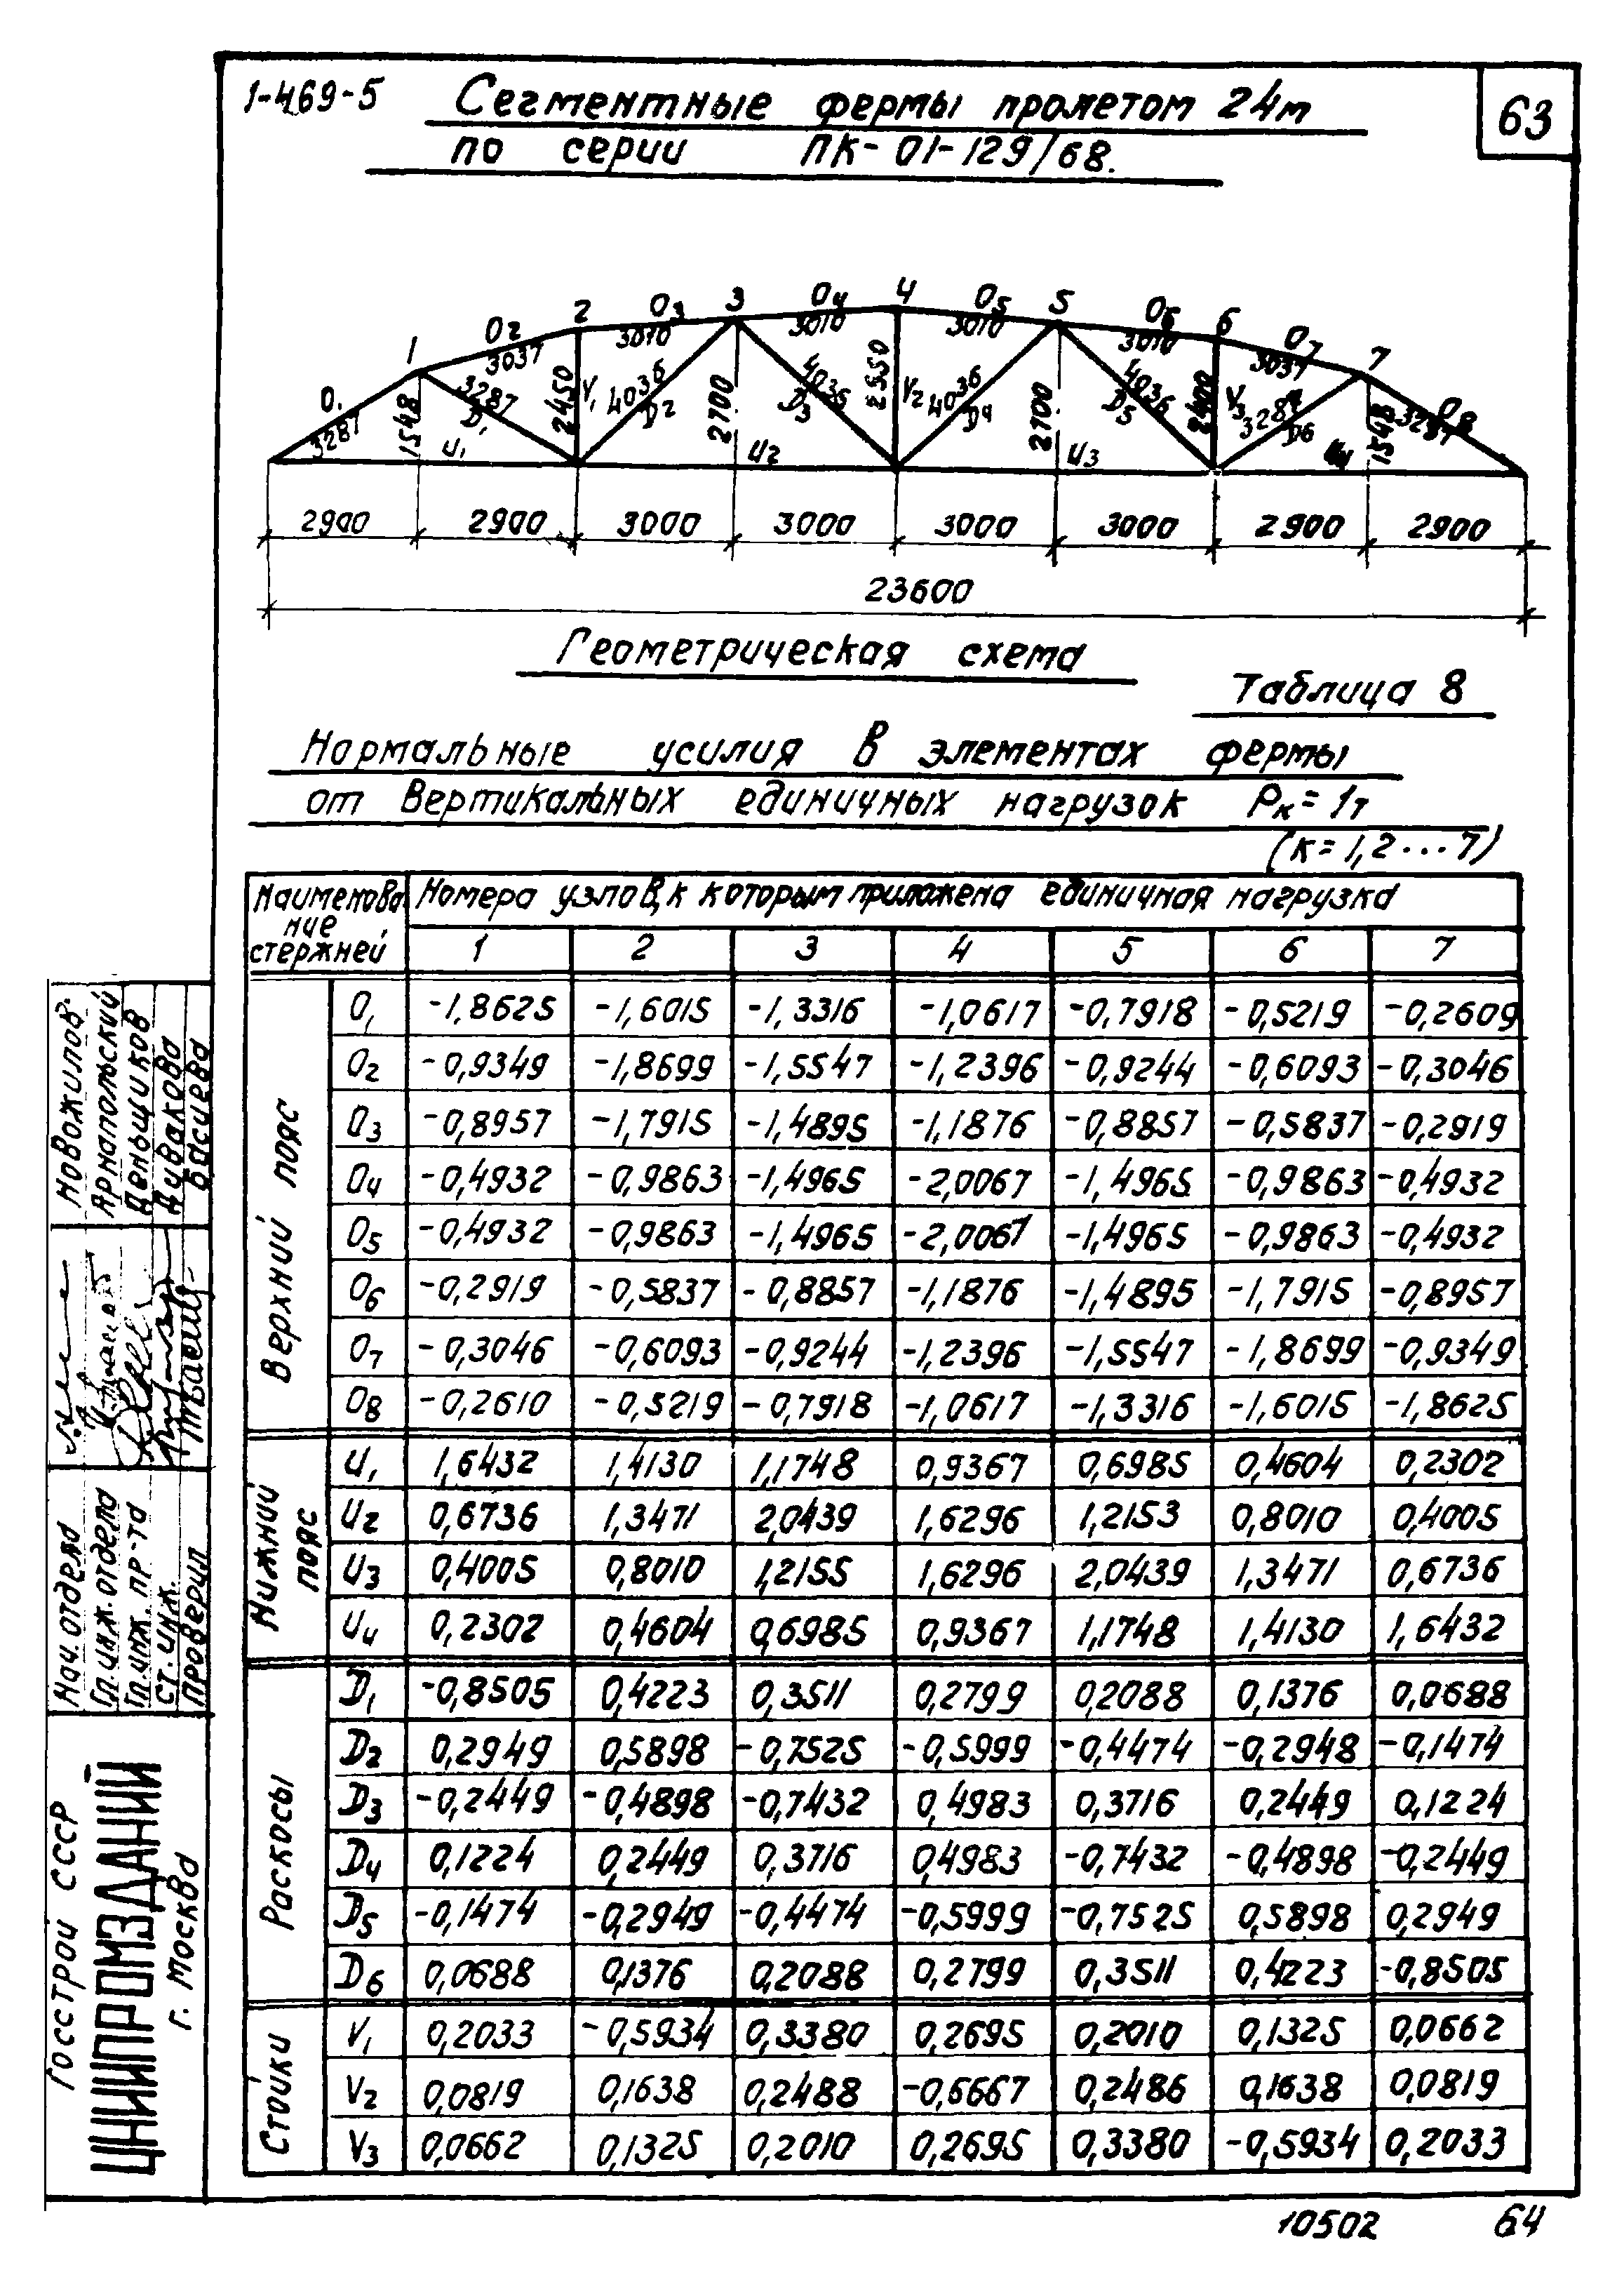 1-469-5 Сегментные фермы пролетом 24м
63
по серии ПК-01-129/68.
1 2 3 4 5 6 7
O₁ O₂ O₃ O₄ O₅ O₆ O₇ O₈
3287 3037 3010 3010 3010 3010 3037 3287
1548 3287 D₁ 2450 V₁ 4036 D₂ 2700 4036 D₃ 2550 V₂ 4036 D₄ 2700 4036 D₅ 2400 V₃ 3287 D₆ 1548
U₁ U₂ U₃ U₄
2900 2900 3000 3000 3000 3000 2900 2900
23600
Геометрическая схема
Таблица 8
Нормальные усилия в элементах фермы
от вертикальных единичных нагрузок Pк = 1т
(к = 1, 2 ... 7)
Наименование стержней | Номера узлов, к которым приложена единичная нагрузка
1 2 3 4 5 6 7
Верхний пояс
O₁ -1,8625 -1,6015 -1,3316 -1,0617 -0,7918 -0,5219 -0,2609
O₂ -0,9349 -1,8699 -1,5547 -1,2396 -0,9244 -0,6093 -0,3046
O₃ -0,8957 -1,7915 -1,4895 -1,1876 -0,8857 -0,5837 -0,2919
O₄ -0,4932 -0,9863 -1,4965 -2,0067 -1,4965 -0,9863 -0,4932
O₅ -0,4932 -0,9863 -1,4965 -2,0067 -1,4965 -0,9863 -0,4932
O₆ -0,2919 -0,5837 -0,8857 -1,1876 -1,4895 -1,7915 -0,8957
O₇ -0,3046 -0,6093 -0,9244 -1,2396 -1,5547 -1,8699 -0,9349
O₈ -0,2610 -0,5219 -0,7918 -1,0617 -1,3316 -1,6015 -1,8625
Нижний пояс
U₁ 1,6432 1,4130 1,1748 0,9367 0,6985 0,4604 0,2302
U₂ 0,6736 1,3471 2,0439 1,6296 1,2153 0,8010 0,4005
U₃ 0,4005 0,8010 1,2155 1,6296 2,0439 1,3471 0,6736
U₄ 0,2302 0,4604 0,6985 0,9367 1,1748 1,4130 1,6432
Раскосы
D₁ -0,8505 0,4223 0,3511 0,2799 0,2088 0,1376 0,0688
D₂ 0,2949 0,5898 -0,7525 -0,5999 -0,4474 -0,2948 -0,1474
D₃ -0,2449 -0,4898 -0,7432 0,4983 0,3716 0,2449 0,1224
D₄ 0,1224 0,2449 0,3716 0,4983 -0,7432 -0,4898 -0,2449
D₅ -0,1474 -0,2949 -0,4474 -0,5999 -0,7525 0,5898 0,2949
D₆ 0,0688 0,1376 0,2088 0,2799 0,3511 0,4223 -0,8505
Стойки
V₁ 0,2033 -0,5934 0,3380 0,2695 0,2010 0,1325 0,0662
V₂ 0,0819 0,1638 0,2488 -0,6667 0,2486 0,1638 0,0819
V₃ 0,0662 0,1325 0,2010 0,2695 0,3380 -0,5934 0,2033
Нач. отдела Новожилов
Гл. инж. отдела Арнапольский
Гл. инж. пр-та Деньщиков
Ст. инж. Дивакова
Проверил Васиева
Госстрой СССР
ЦНИИПРОМЗДАНИЙ
г. Москва
10502 64